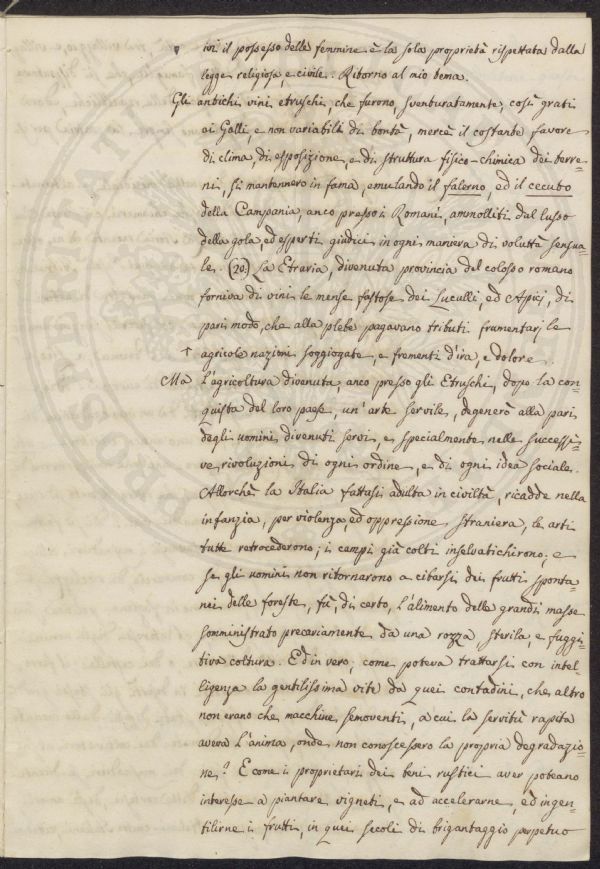 ivi il possesso delle femmine è la sola proprietà rispettata dalla
legge religiosa, e civile. Ritorno al mio tema.
Gli antichi vini etruschi, che furono, sventuratamente, così grati
ai Galli, e non variabili di bontà, mercè il costante favore
di clima, di esposizione, e di struttura fisico-chimica dei terre=
ni, si mantennero in fama, emulando il falerno, ed il cecubo
della Campania, anco presso i Romani, ammolliti dal lusso
della gola, ed esperti giudici in ogni maniera di voluttà sensua=
le. (20) La Etruria, divenuta provincia del colosso romano
forniva di vini le mense fastose dei Luculli, ed Apicj, di
pari modo, che alla plebe pagavano tributi frumentarj le
agricole nazioni soggiogate, e frementi d'ira, e dolore.
Ma L'agricoltura divenuta, anco presso gli Etruschi, dopo la con=
quista del loro paese, un'arte servile, degenerò alla pari
degli uomini divenuti servi, e specialmente nelle successi=
ve rivoluzioni di ogni ordine, e di ogni idea sociale.
Allorchè la Italia fattasi adulta in civiltà, ricadde nella
infanzia, per violenza, ed oppressione straniera, le arti
tutte retrocederono; i campi già colti inselvatichirono; e
se gli uomini non ritornarono a cibarsi dei frutti sponta=
nei delle foreste, fù, di certo, l'alimento delle grandi masse
somministrato precariamente da una rozza sterile, e fuggi=
tiva coltura. Ed in vero; come poteva trattarsi con intel=
ligenza la gentilissima vite da quei contadini, che altro
non erano che macchine semoventi, a cui la servitù rapita
aveva l'ànima, onde non conoscessero la propria degradazio=
ne? E come i proprietari dei beni rustici aver poteano
interesse a piantare vigneti, e ad accelerarne, ed ingen=
tilirne i frutti, in quei secoli di brigantaggio perpetuo
PROSPERITATI